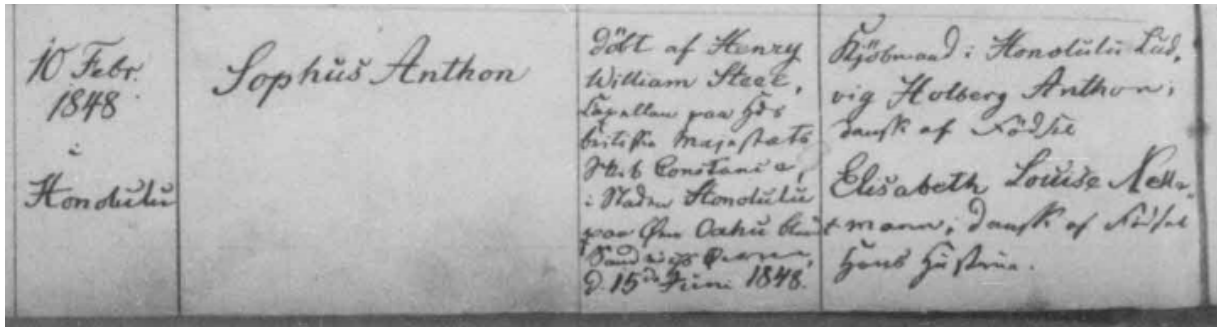 10 Febr.
1848
i
Honolulu
Sophus Anthon
Döbt af Henry
William Steel,
Capellan paa Hds
britiske Majestæts
Skib Constance,
i Staden Honolulu
paa Øen Oahu blandt
Sandwichs Øerne,
d. 15de Juni 1848.
Kjöbmand i Honolulu Lud,
vig Holberg Anthon,
dansk af Födsel
Elisabeth Louise
mann, dansk af Födsel
Hans Hüstrue.